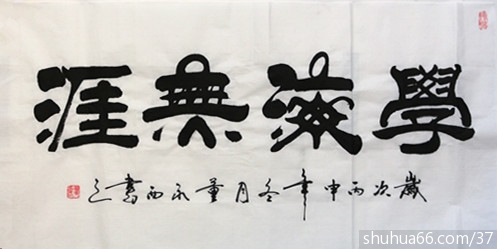 學海無涯
歲次丙申年冬月董永西書之
shuhua66.com/37